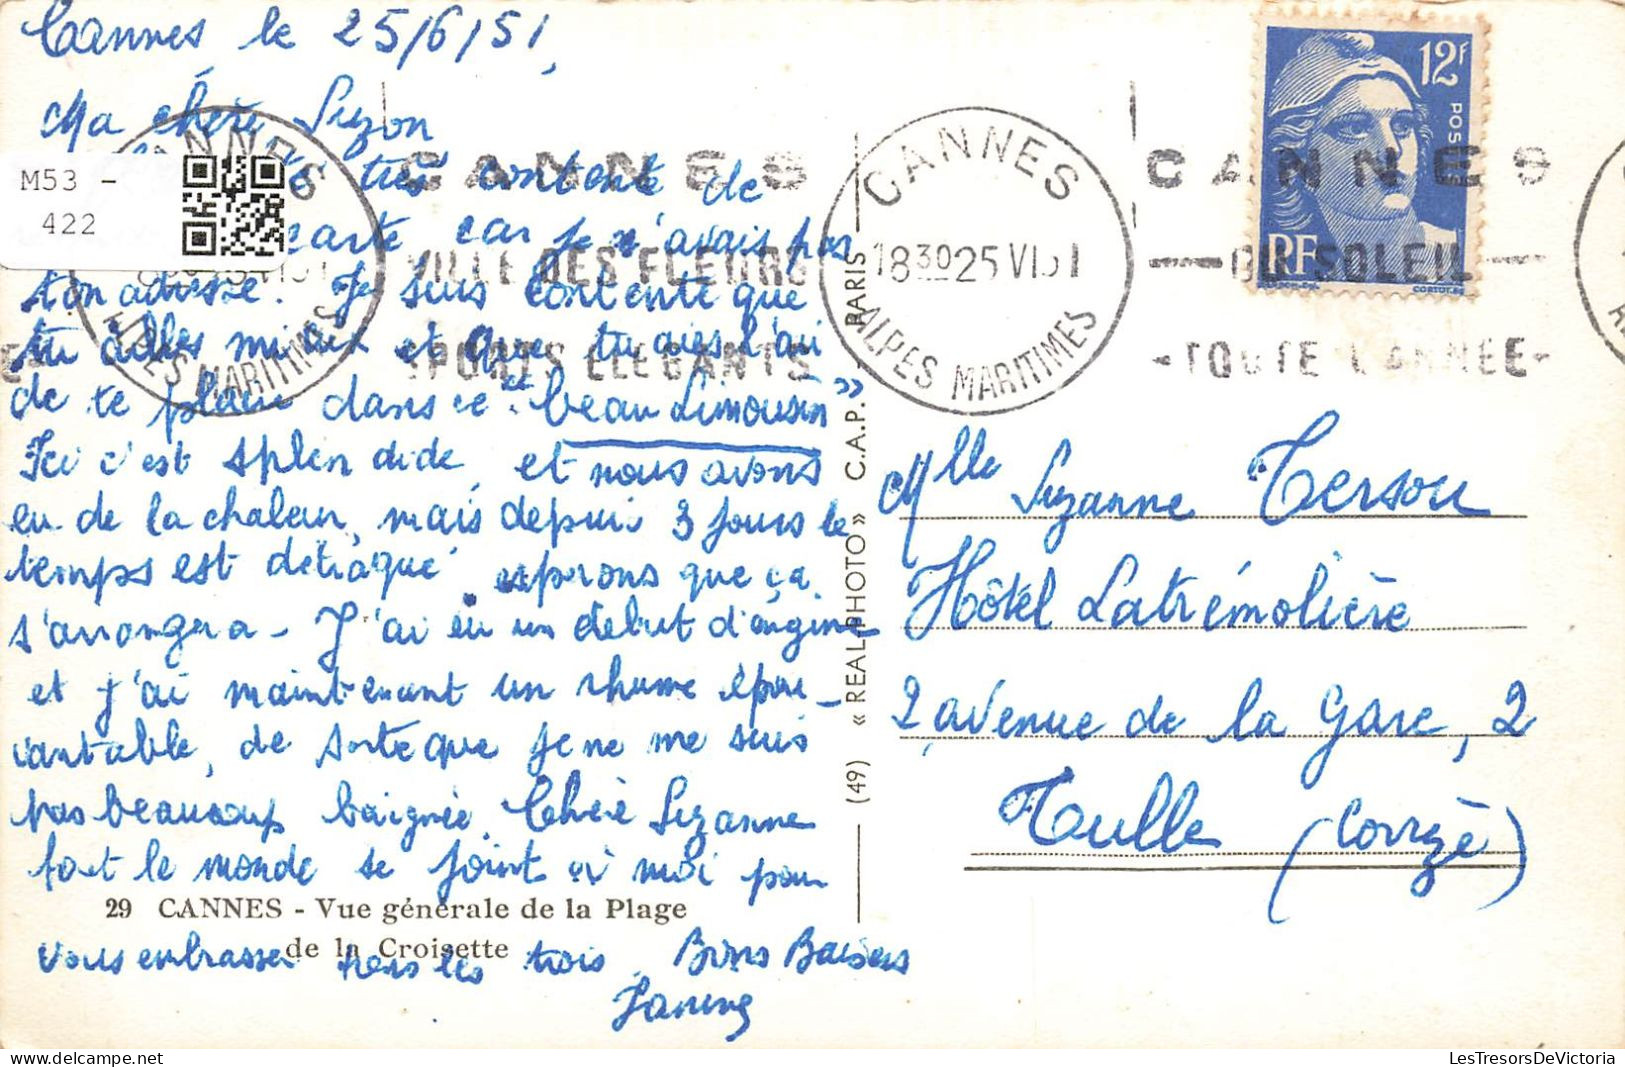 Cannes le 25/6/51,
Ma chère Suzon
très contente de
carte car je n'avais pas
ton adresse. Je suis contente que
tu ailles mieux et que tu aies l'air
de te plaire dans ce "beau Limousin"
Ici c'est splendide, et nous avons
eu de la chaleur, mais depuis 3 jours le
temps est détraqué, espérons que ça
s'arrangera - J'ai eu un début d'angine
et j'ai maintenant un rhume épou-
vantable, de sorte que je ne me suis
pas beaucoup baignée. Chère Suzanne
tout le monde se joint à moi pour
vous embrasser tous les trois. Bons Baisers
Janine
M53 -
422
29 CANNES - Vue générale de la Plage
de la Croisette
(49) « REAL-PHOTO » C.A.P. - PARIS
CANNES
ALPES MARITIMES
CANNES
VILLE DES FLEURS
SPORTS ELEGANTS
CANNES
18 30 25 VI 51
ALPES MARITIMES
CANNES
- AU SOLEIL -
- TOUTE L'ANNEE -
12F
POSTES
RF
CORTOT.SC
Mlle Suzanne Tersou
Hôtel Latrémolière
2 avenue de la Gare, 2
Tulle (Corrèze)
LesTresorsDeVictoria